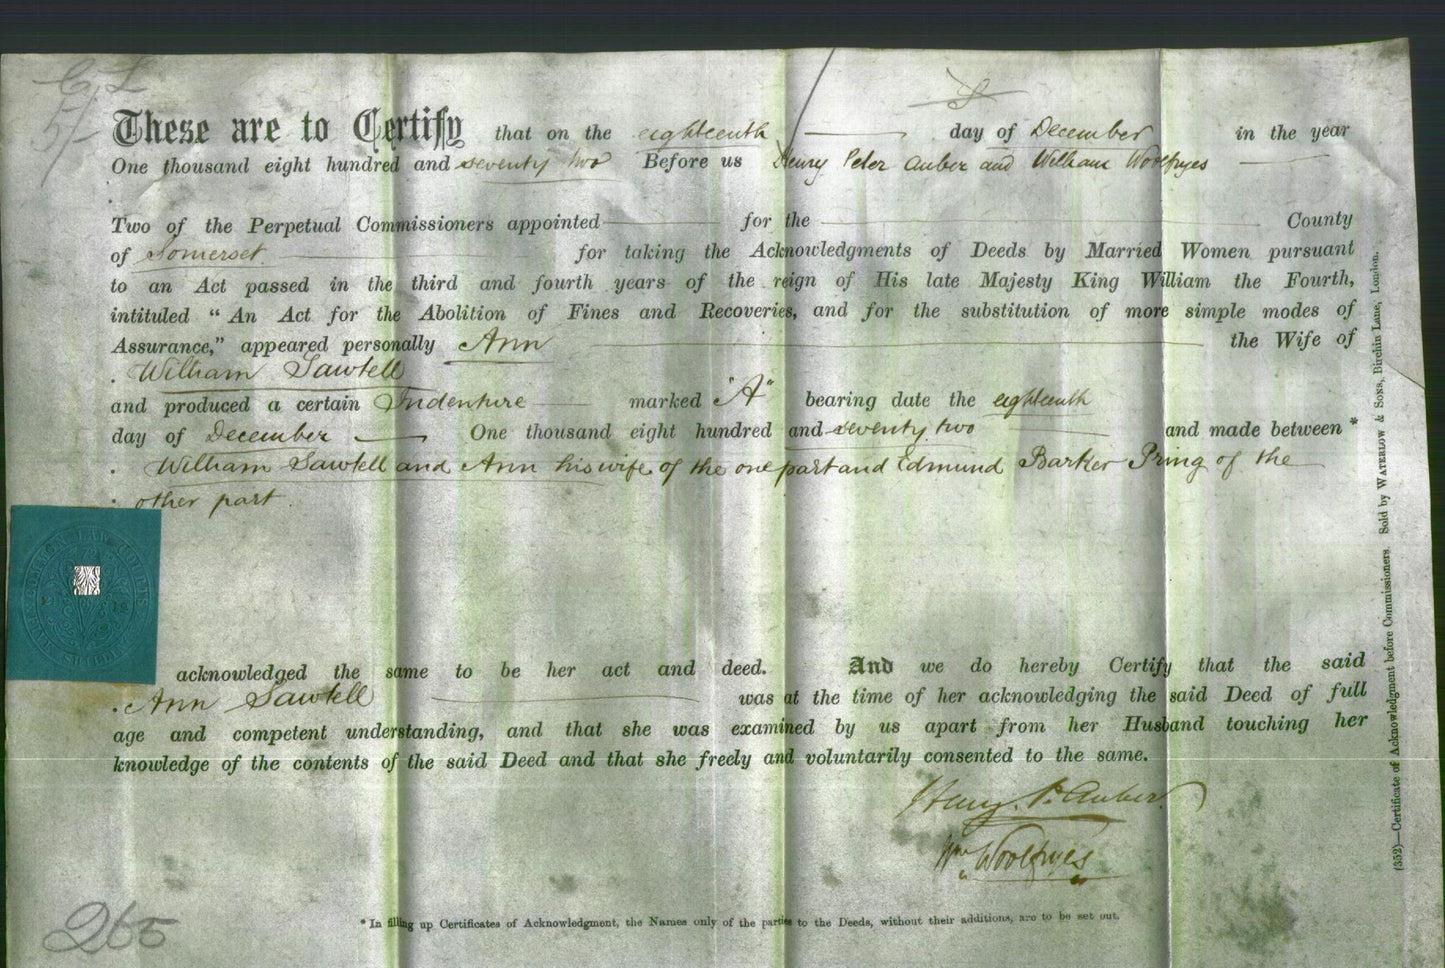 C L
5/-
These are to Certify that on the eighteenth day of December in the year
One thousand eight hundred and seventy two Before us Henry Peter Auber and William Woolfryes
Two of the Perpetual Commissioners appointed for the County
of Somerset for taking the Acknowledgments of Deeds by Married Women pursuant
to an Act passed in the third and fourth years of the reign of His late Majesty King William the Fourth,
intituled “ An Act for the Abolition of Fines and Recoveries, and for the substitution of more simple modes of
Assurance,” appeared personally Ann the Wife of
William Sawtell
and produced a certain Indenture marked "A" bearing date the eighteenth
day of December One thousand eight hundred and seventy two and made between *
William Sawtell and Ann his wife of the one part and Edmund Barker Pring of the
other part
COMMON LAW COURTS
FIVE SHILLINGS
acknowledged the same to be her act and deed. And we do hereby Certify that the said
Ann Sawtell was at the time of her acknowledging the said Deed of full
age and competent understanding, and that she was examined by us apart from her Husband touching her
knowledge of the contents of the said Deed and that she freely and voluntarily consented to the same.
Henry P. Auber
Wm Woolfryes
* In filling up Certificates of Acknowledgment, the Names only of the parties to the Deeds, without their additions, are to be set out.
265
(352)—Certificate of Acknowledgment before Commissioners. Sold by WATERLOW & SONS, Birchin Lane, London.